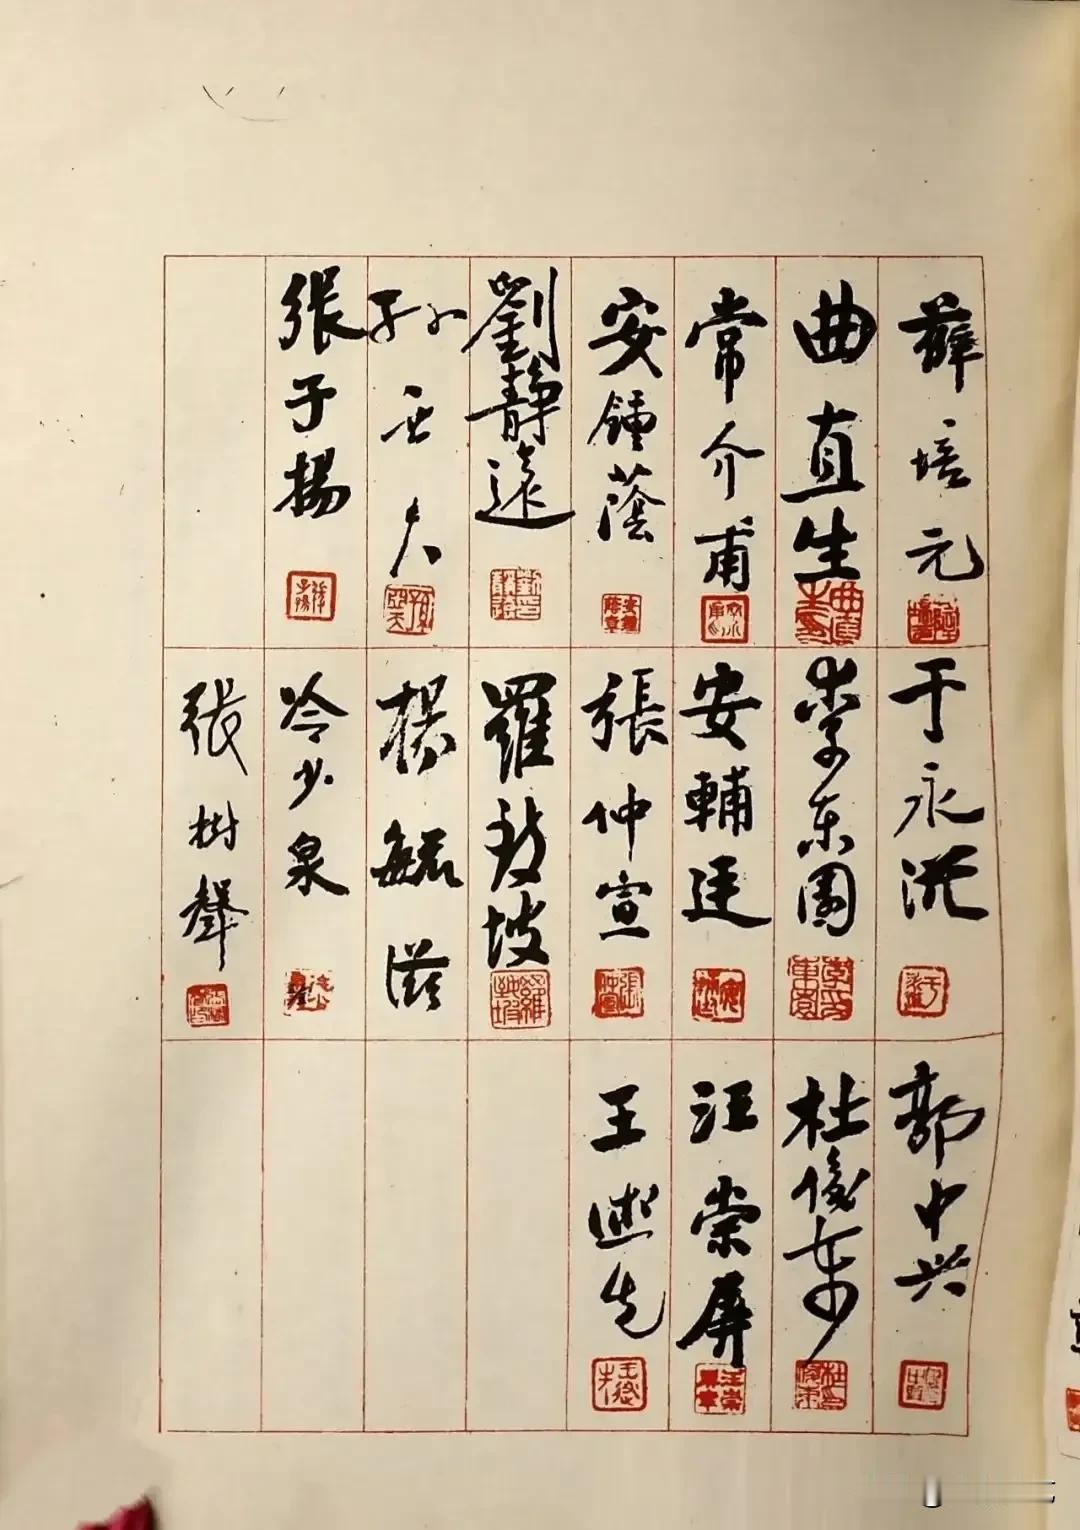 薛培元
曲直生
常介甫
安鍾蔭
劉靜遠
孙亚夫
張子揚
于永滋
李东園
安輔廷
張仲宣
羅致坡
楊毓滋
冷少泉
張樹聲
郭中兴
杜俊东
汪崇屏
王先